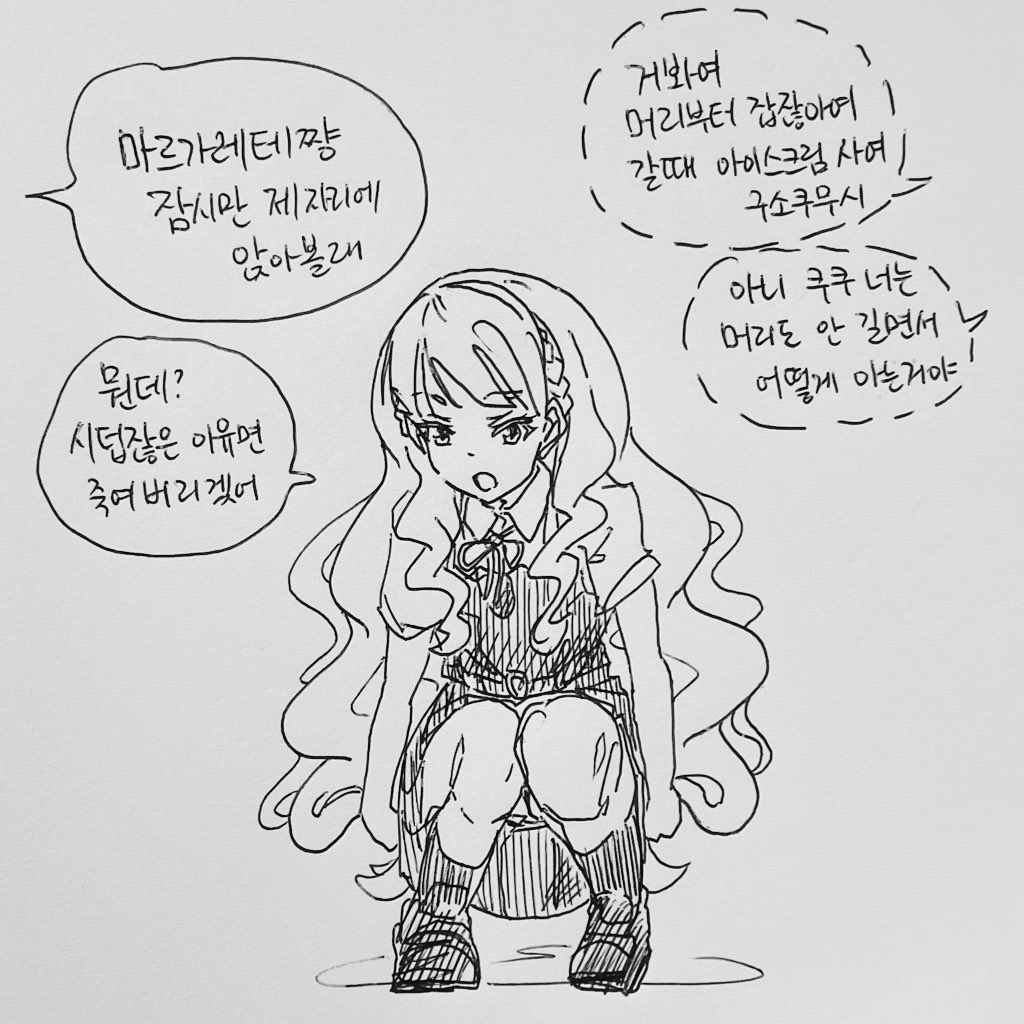 마르가레테쨩
잠시만 제자리에
앉아볼래
뭔데?
시덥잖은 이유면
죽여버리겠어
거봐여
머리부터 잡잖아여
갈때 아이스크림 사여
구소쿠무시
아니 쿠쿠 너는
머리도 안 길면서
어떻게 아는거야